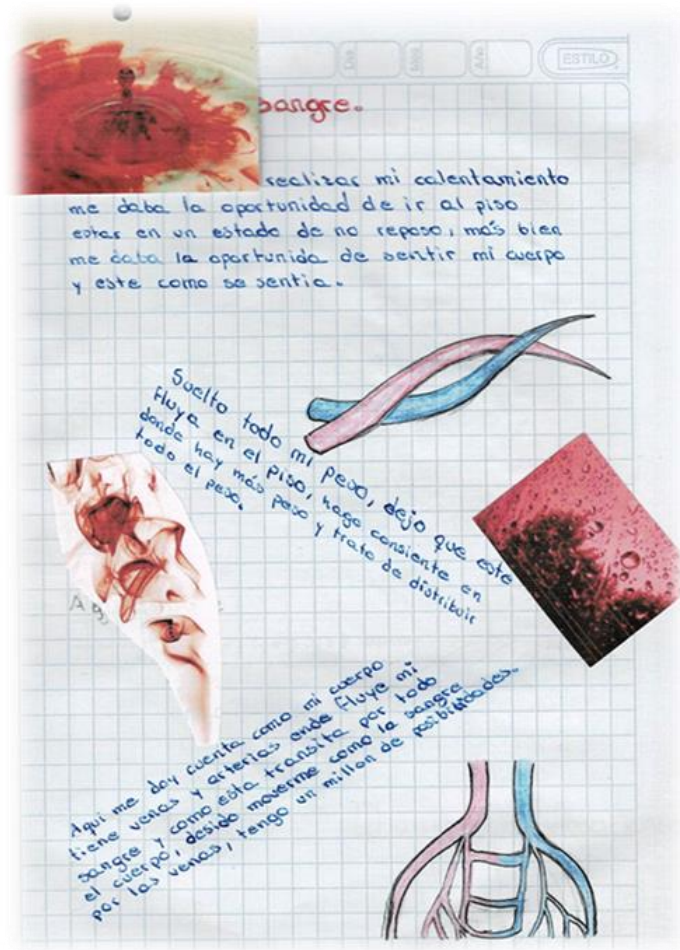 Día
Mes
Año
ESTILO
sangre.
realizar mi calentamiento
me daba la oportunidad de ir al piso
estar en un estado de no reposo, más bien
me daba la oportunida de sentir mi cuerpo
y este como se sentia.
Suelto todo mi peso, dejo que este
fluya en el piso, hago consiente en
donde hay más peso y trato de distribuir
todo el peso.
Aqui me doy cuenta como mi cuerpo
tiene venas y arterias ende fluye mi
sangre y como esta transita por todo
el cuerpo, desido moverme como la sangre
por las venas, tengo un millon de posibilidades.